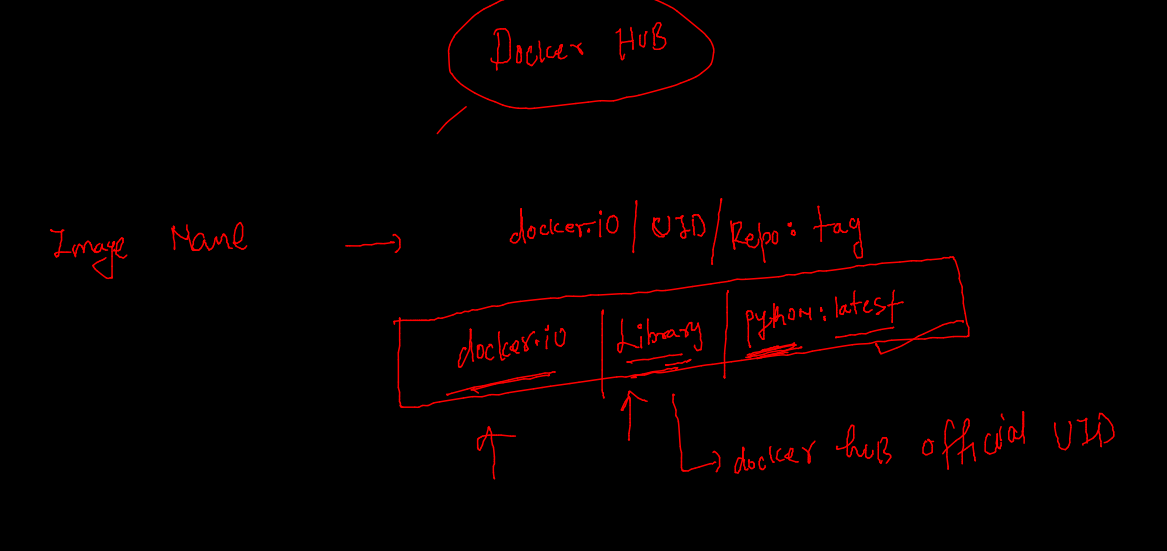 Docker HUB
Image Name → docker.io / UID / Repo: tag
docker.io / Library / python: latest
docker hub official UID